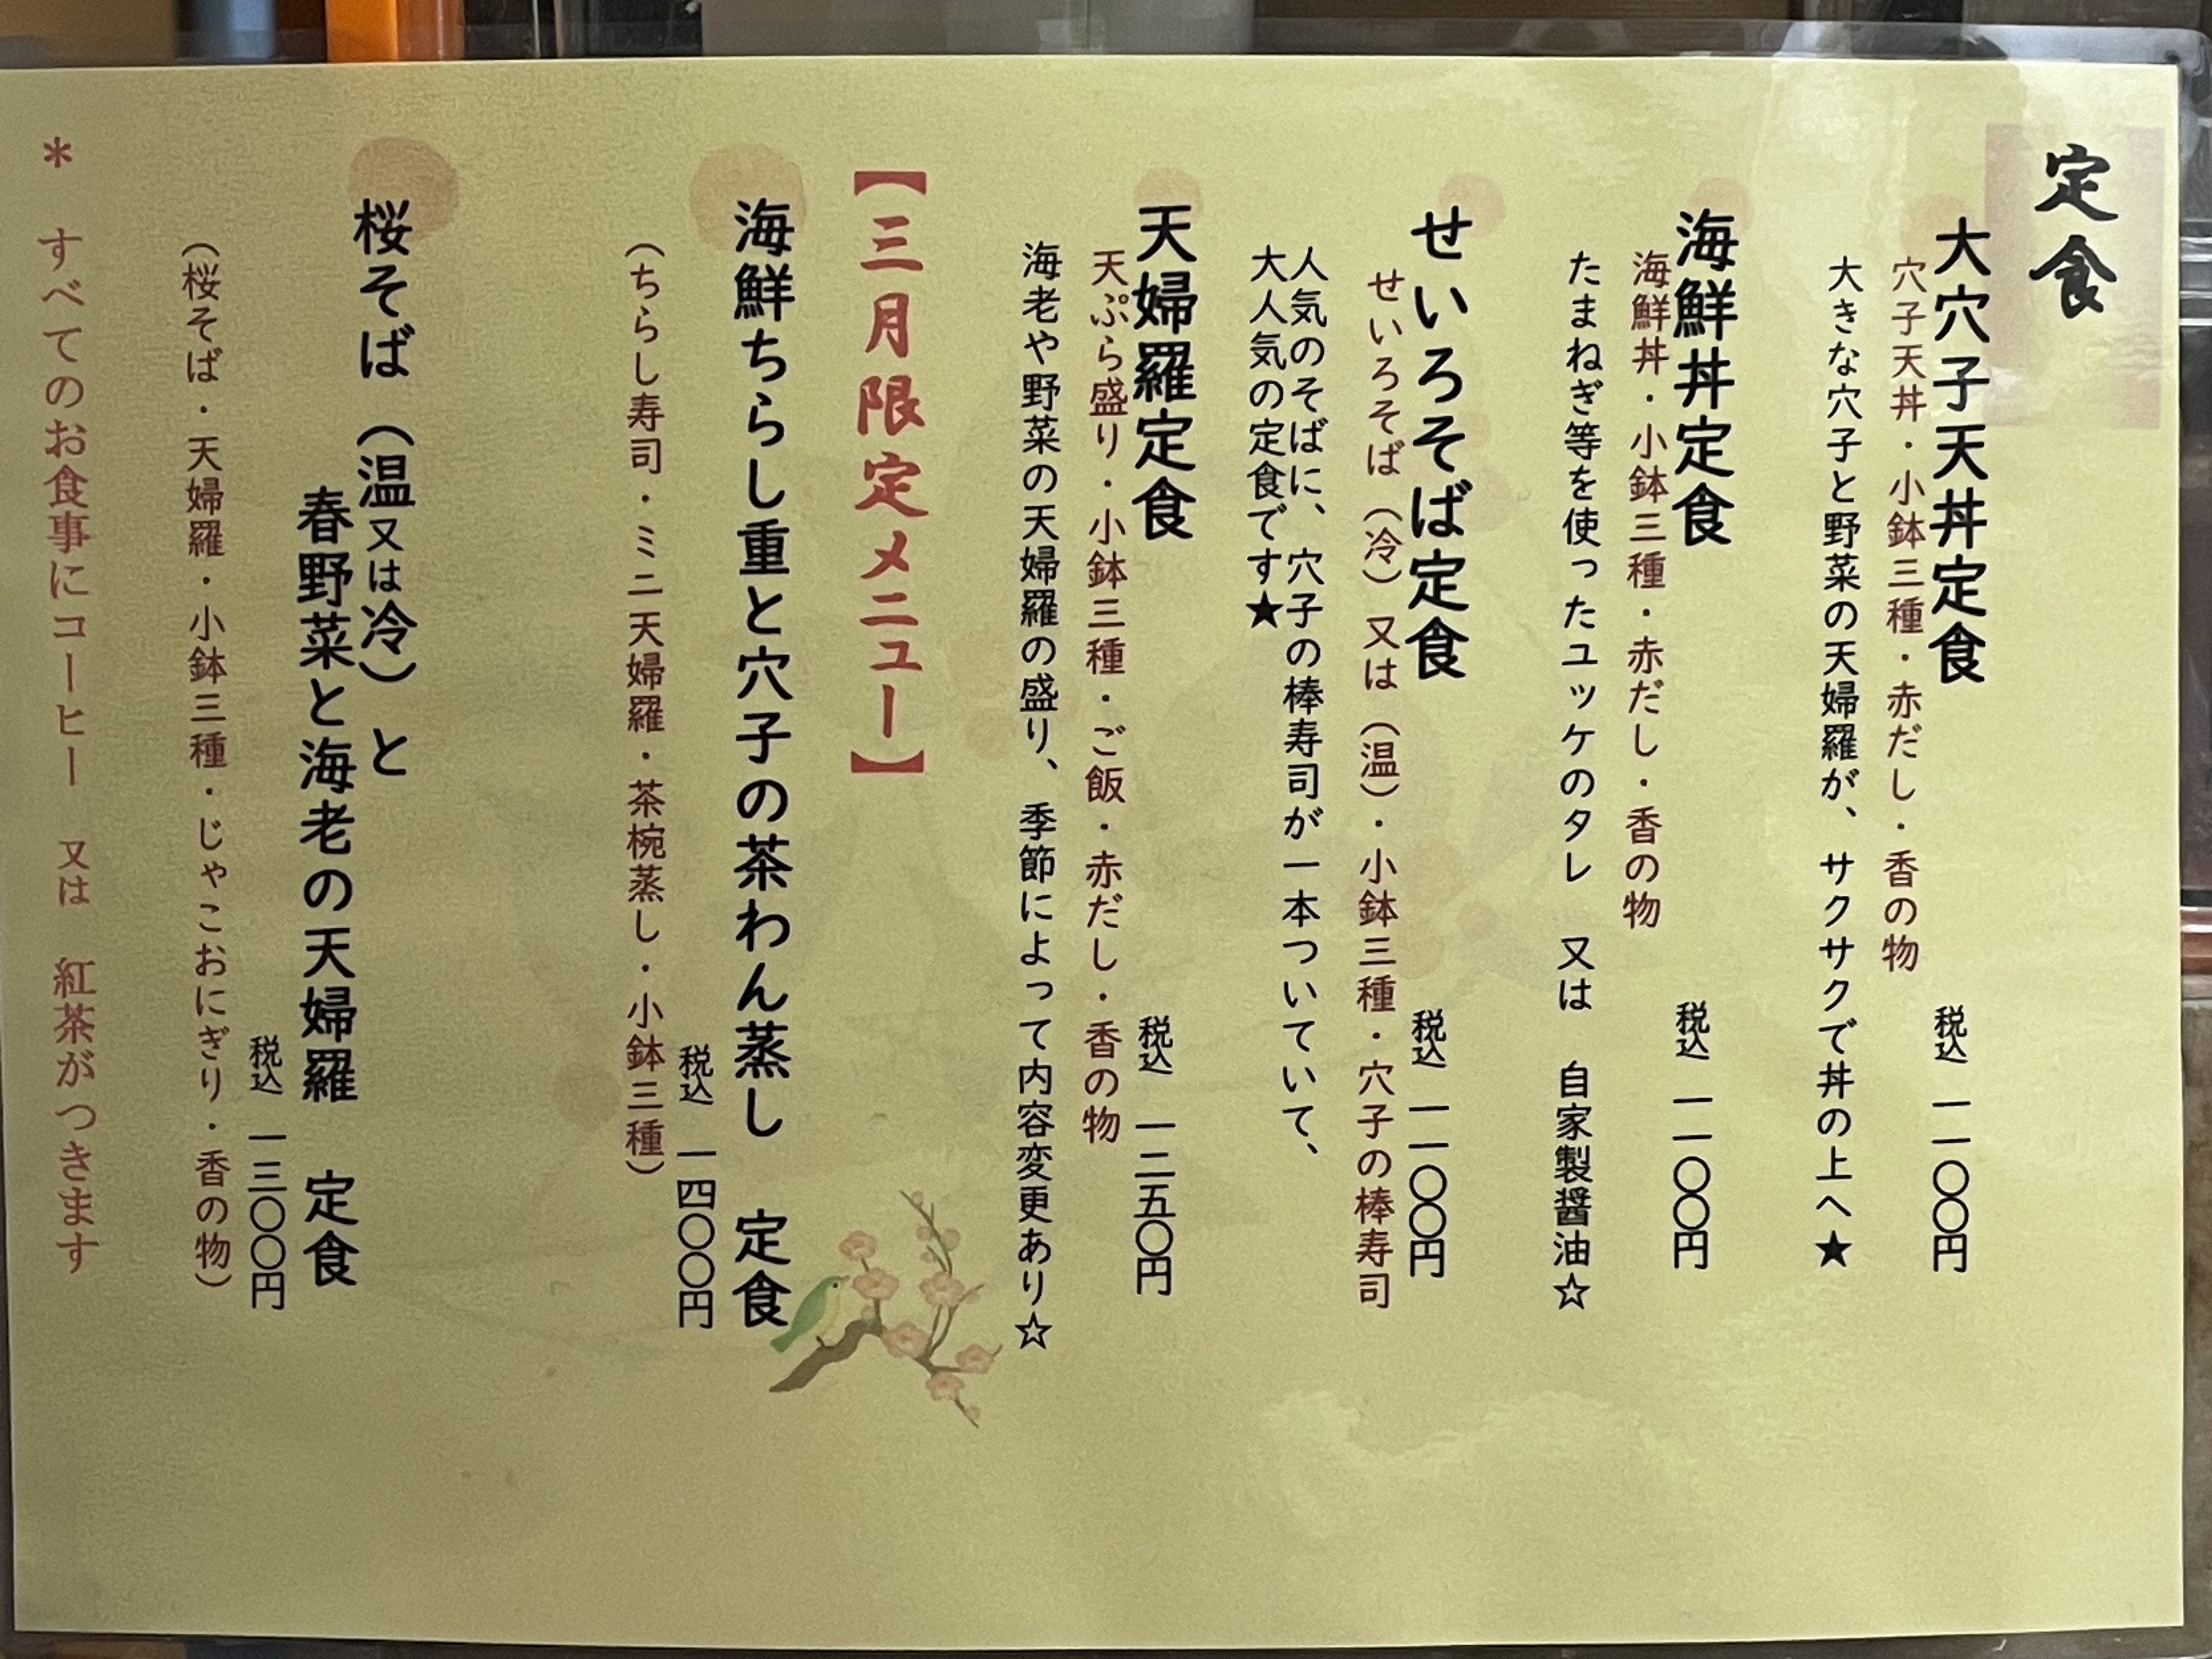 定食
大穴子天丼定食 税込 一一〇〇円
穴子天丼・小鉢三種・赤だし・香の物
大きな穴子と野菜の天婦羅が、サクサクで丼の上へ★
海鮮丼定食 税込 一一〇〇円
海鮮丼・小鉢三種・赤だし・香の物
たまねぎ等を使ったユッケのタレ 又は 自家製醤油☆
せいろそば定食 税込 一一〇〇円
せいろそば（冷）又は（温）・小鉢三種・穴子の棒寿司
人気のそばに、穴子の棒寿司が一本ついていて、
大人気の定食です★
天婦羅定食 税込 一二五〇円
天ぷら盛り・小鉢三種・ご飯・赤だし・香の物
海老や野菜の天婦羅の盛り、季節によって内容変更あり☆
【三月限定メニュー】
海鮮ちらし重と穴子の茶わん蒸し 定食
税込 一四〇〇円
（ちらし寿司・ミニ天婦羅・茶椀蒸し・小鉢三種）
桜そば（温又は冷）と
春野菜と海老の天婦羅 定食
税込 一三〇〇円
（桜そば・天婦羅・小鉢三種・じゃこおにぎり・香の物）
＊ すべてのお食事にコーヒー 又は 紅茶がつきます